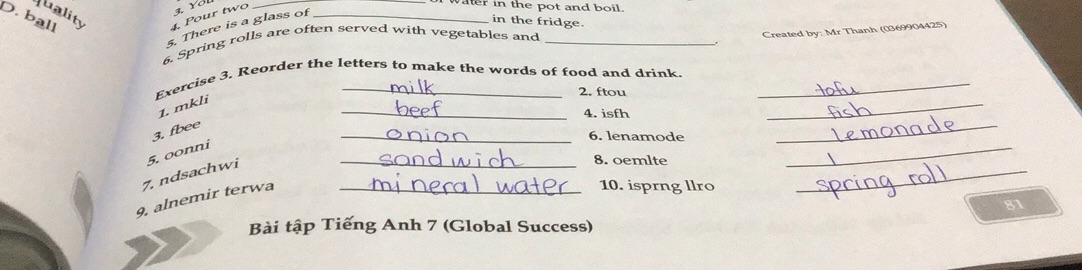 quality
D. ball
3. You
4. Pour two ____ of water in the pot and boil.
5. There is a glass of ____ in the fridge.
6. Spring rolls are often served with vegetables and ____.
Created by: Mr Thanh (0369904425)
Exercise 3. Reorder the letters to make the words of food and drink.
1. mkli milk 2. ftou tofu
3. fbee beef 4. isfh fish
5. oonni onion 6. lenamode lemonade
7. ndsachwi sandwich 8. oemlte l
9. alnemir terwa mineral water 10. isprng llro spring roll
81
Bài tập Tiếng Anh 7 (Global Success)